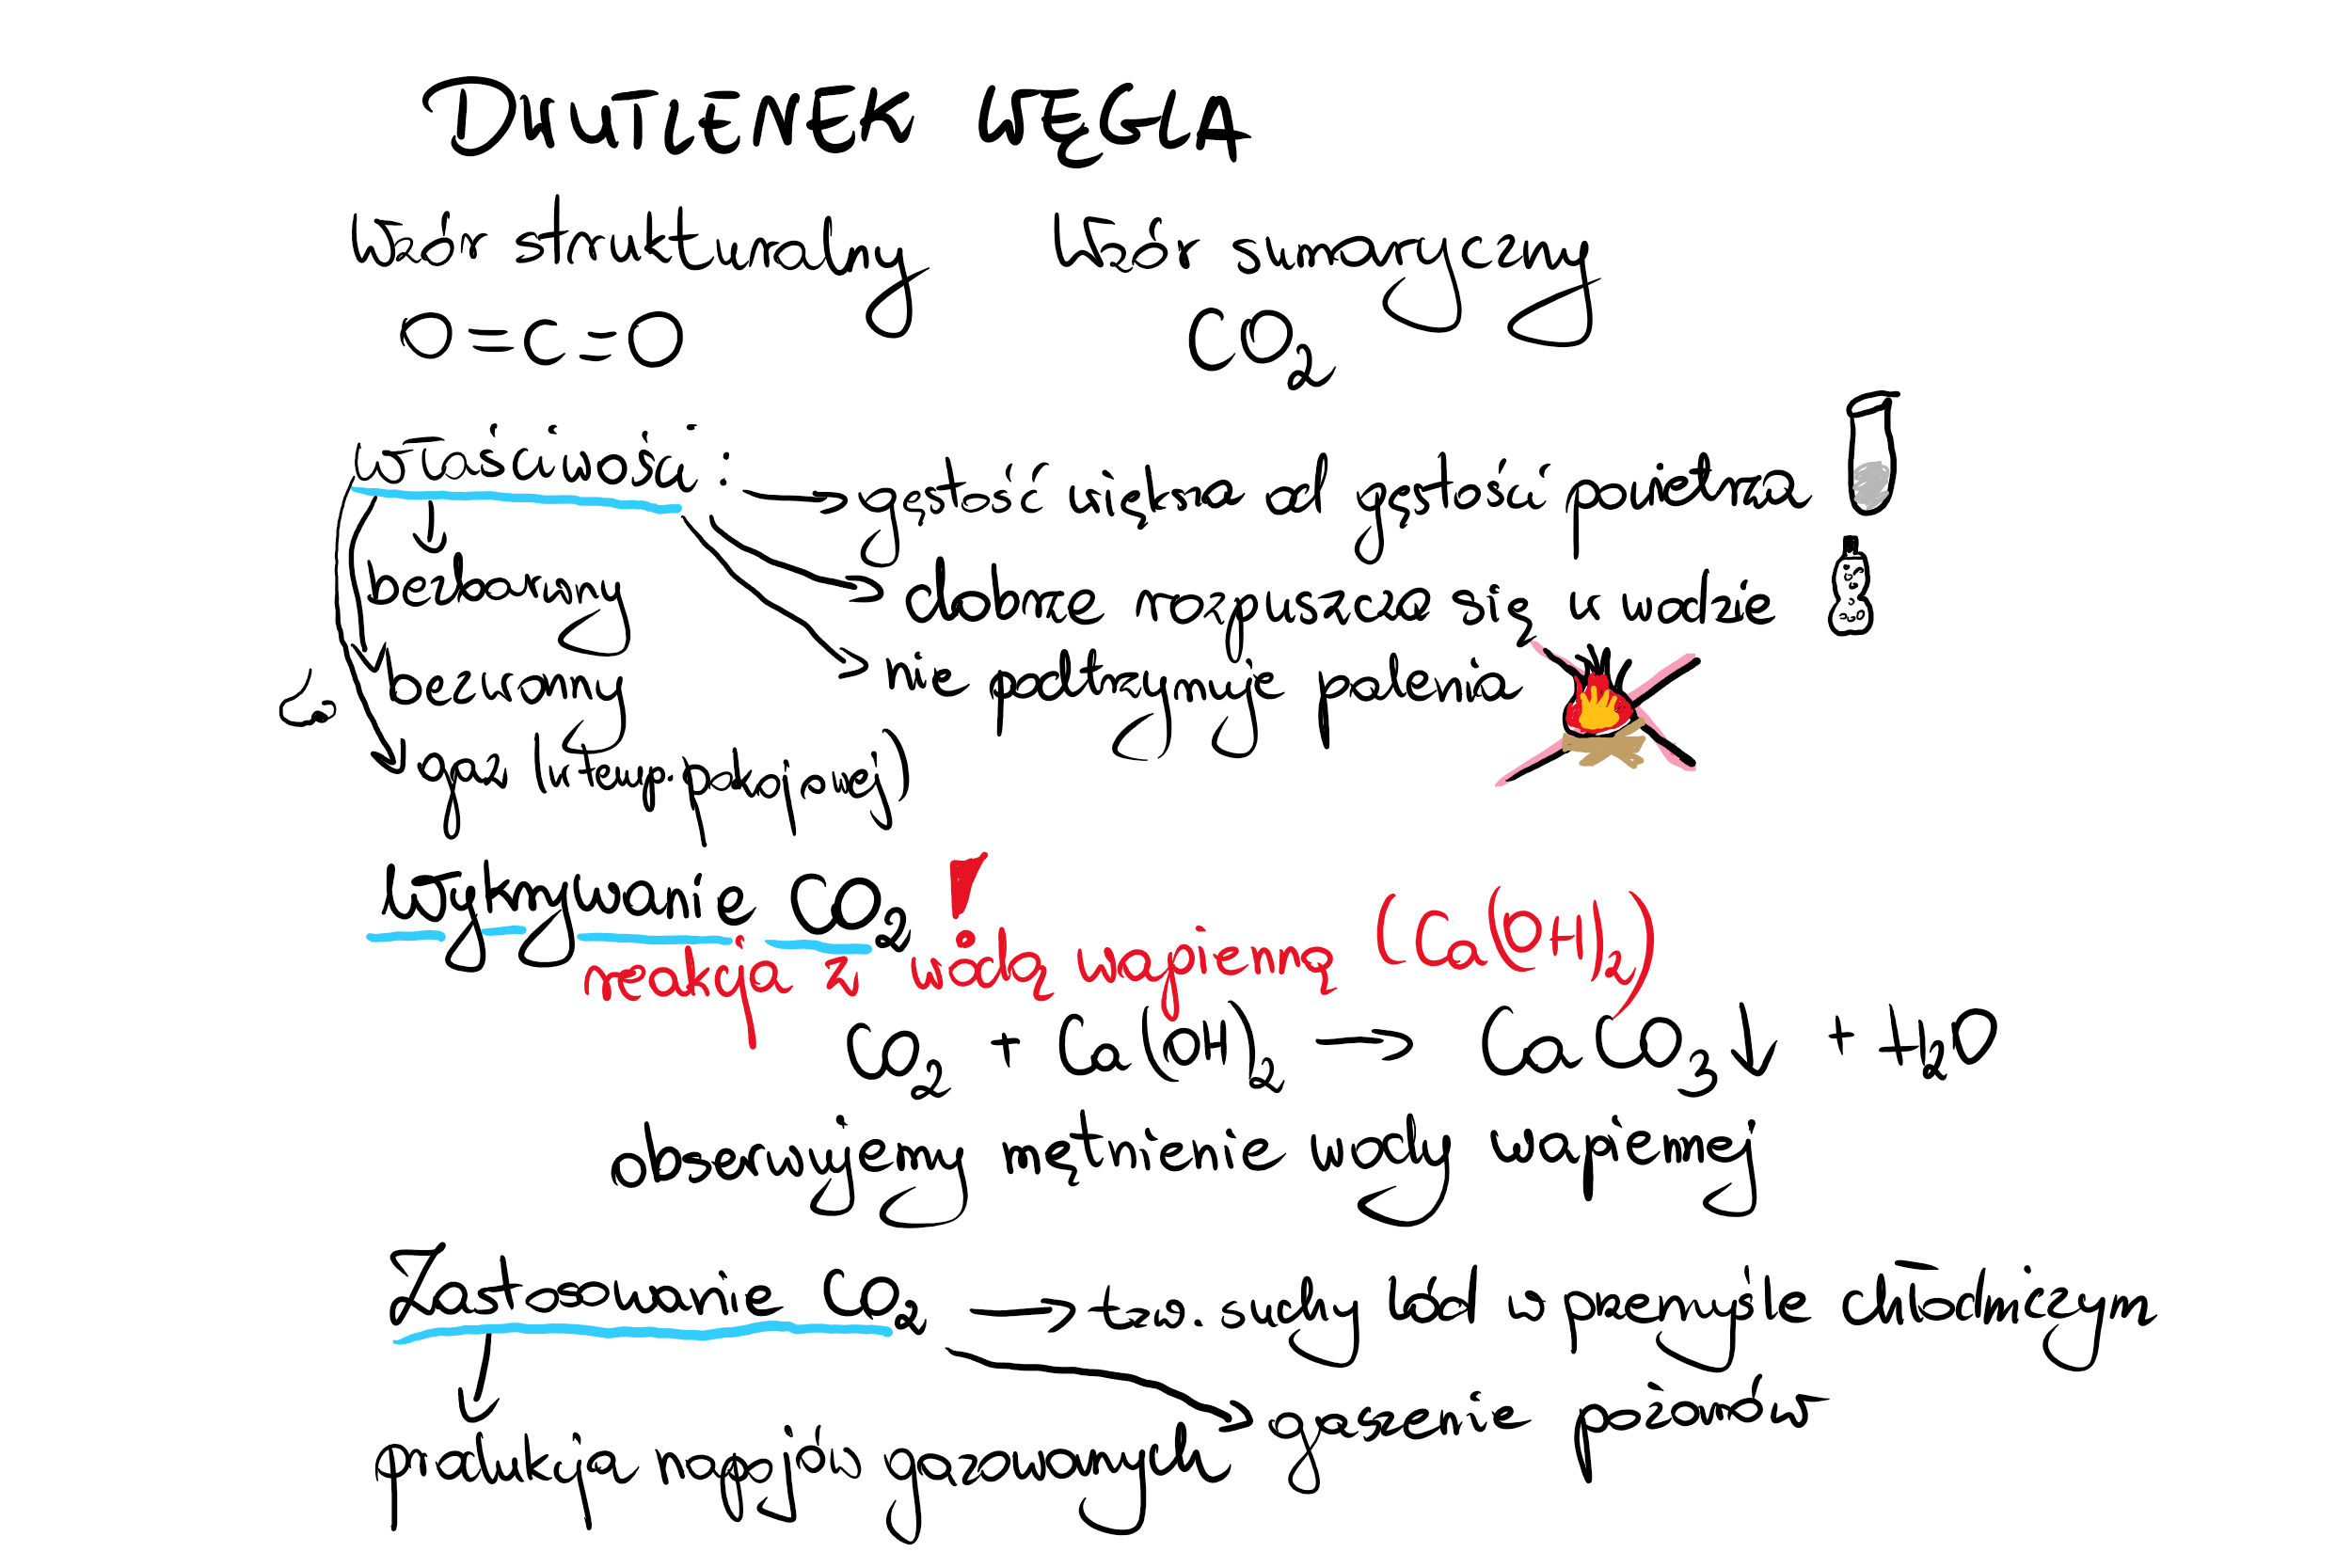 DWUTLENEK WĘGLA
Wzór strukturalny Wzór sumaryczny
O=C=O CO₂
właściwości:
gęstość większa od gęstości powietrza
bezbarwny
dobrze rozpuszcza się w wodzie
bezwonny
nie podtrzymuje palenia
gaz (w temp. pokojowej)
Wykrywanie CO₂!
reakcja z wodą wapienną (Ca(OH)₂)
CO₂ + Ca(OH)₂ → CaCO₃↓ + H₂O
obserwujemy mętnienie wody wapiennej
Zastosowanie CO₂ → tzw. suchy lód w przemyśle chłodniczym
gaszenie pożarów
produkcja napojów gazowanych